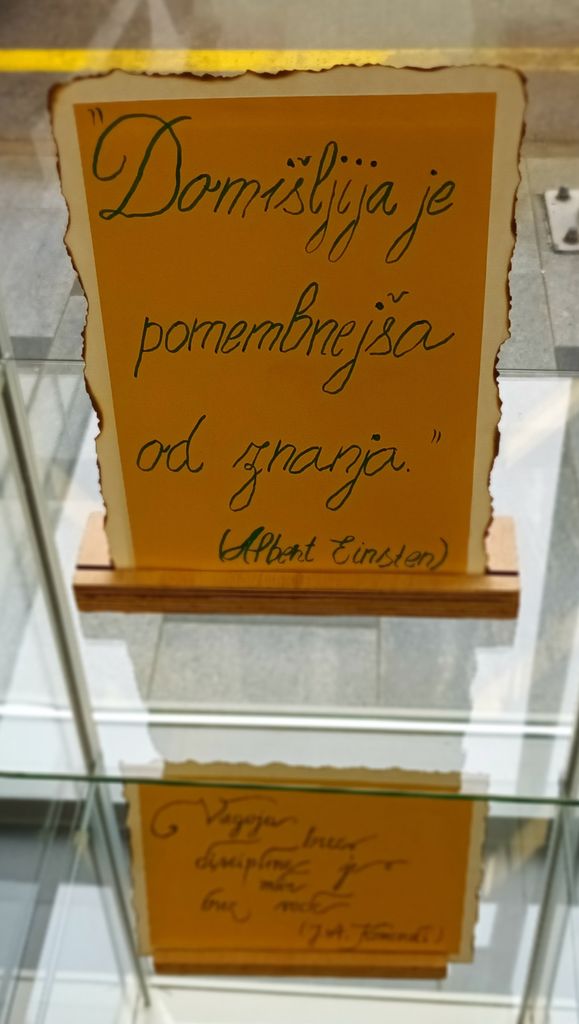 "Domišljija je
pomembnejša
od znanja."
(Albert Einsten)
Vzgoja
brez
discipline je
mlin
brez vode